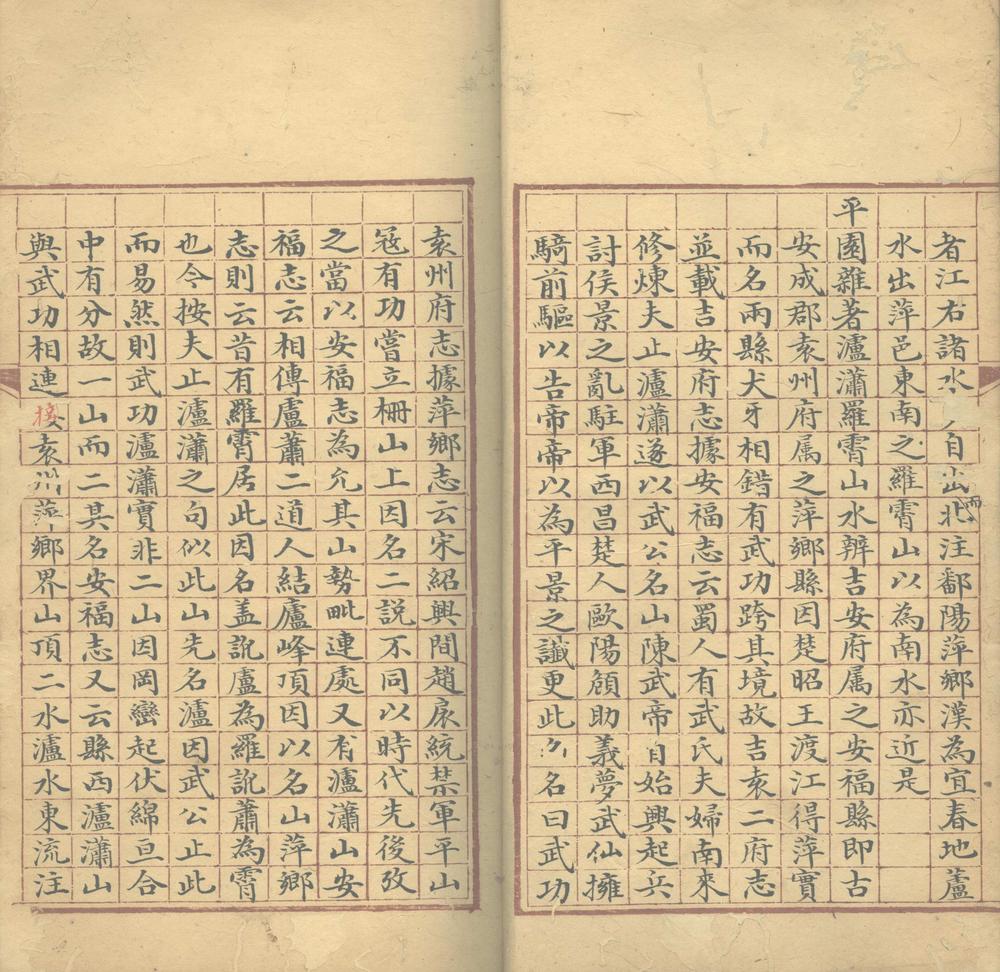 者江右諸水自出北注鄱陽萍鄉漢為宜春地蘆
水出萍邑東南之羅霄山以為南水亦近是
平園雜著瀘瀟羅霄山水辨吉安府属之安福縣即古
安成郡袁州府属之萍鄉縣因楚昭王渡江得萍實
而名兩縣犬牙相錯有武功跨其境故吉袁二府志
並載吉安府志據安福志云蜀人有武氏夫婦南來
修煉夫止瀘瀟遂以武公名山陳武帝自始興起兵
討侯景之亂駐軍西昌楚人歐陽頠助義夢武仙擁
騎前驅以告帝帝以為平景之讖更此名曰武功
袁州府志據萍鄉志云宋紹興間趙扆統禁軍平山
寇有功嘗立柵山上因名二說不同以時代先後攷
之當以安福志為允其山勢毗連處又有瀘瀟山安
福志云相傳盧蕭二道人結廬峰頂因以名山萍鄉
志則云昔有羅霄居此因名盖訛盧為羅訛蕭為霄
也今按夫止瀘瀟之句似此山先名瀘因武公止此
而易然則武功瀘瀟實非二山因岡巒起伏綿亘合
中有分故一山而二其名安福志又云縣西瀘瀟山
與武功相連接袁州萍鄉界山頂二水瀘水東流注